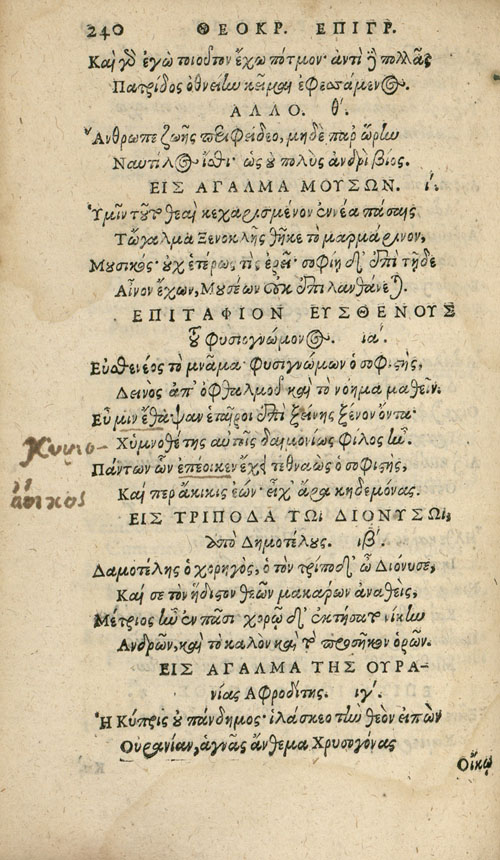 240 ΘΕΟΚΡ. ΕΠΙΓΡ.
Καὶ γὸ ἐγὼ τοιοῦτον ἔχω πότμον· ἀντὶ ἢ πολλᾶς
Πατρίδος ὀθνείαν κεῖμαι ἐφεσσάμενος.
ΑΛΛΟ. θʹ.
Ἄνθρωπε ζωῆς περιφείδεο, μηδὲ παρ' ὥρην
Ναυτίλος ἴσθι· ὡς οὐ πολὺς ἀνδρὶ βίος.
ΕΙΣ ΑΓΑΛΜΑ ΜΟΥΣΩΝ. ί.
Ὑμῖν τοῦτο θεαὶ κεχαρισμένον ἐννέα πάσαις
Τὤγαλμα Ξενοκλῆς θῆκε τὸ μαρμάρινον,
Μουσικός· οὐχ ἑτέρως τὶς ἐρεῖ· σοφίῃ δ' ἐπὶ τῇδε
Αἶνον ἔχων, Μουσέων οὐκ ἐπιλανθάνεται.
ΕΠΙΤΑΦΙΟΝ ΕΥΣΘΕΝΟΥΣ
τοῦ φυσιογνώμονος. ιαʹ.
Εὐσθενέος τὸ μνᾶμα· φυσιγνώμων ὁ σοφιστής,
Δεινὸς ἀπ' ὀφθαλμοῦ καὶ τὸ νόημα μαθεῖν.
Εὖ μιν ἔθαψαν ἑταῖροι ἐπὶ ξείνης ξένον ὄντα·
Χὑμνοθέτης αὐτοῖς δαιμονίως φίλος ἦν.
Πάντων ὧν ἐπέοικεν ἔχει τεθναὼς ὁ σοφιστής,
Καί περ ἄκικις ἐών· εἶχ' ἄρα κηδεμόνας.
ΕΙΣ ΤΡΙΠΟΔΑ ΤΩι ΔΙΟΝΥΣΩι,
ὑπὸ Δημοτέλους. ιβʹ.
Δαμοτέλης ὁ χορηγὸς, ὁ τὸν τρίποδ' ὦ Διόνυσε,
Καὶ σε τὸν ἥδιστον θεῶν μακάρων ἀναθεὶς,
Μέτριος ἦν ἐν πᾶσι· χορῷ δ' ἐκτήσατο νίκην
Ανδρῶν, καὶ τὸ καλὸν καὶ τὸ προσῆκον ὁρῶν.
ΕΙΣ ΑΓΑΛΜΑ ΤΗΣ ΟΥΡΑ-
νίας Αφροδίτης. ιγʹ.
Ἡ Κύπρις οὐ πάνδημος· ἱλάσκεο τὴν θεὸν εἰπὼν
Οὐρανίαν, ἁγνᾶς ἄνθεμα Χρυσογόνας
Οἴκῳ